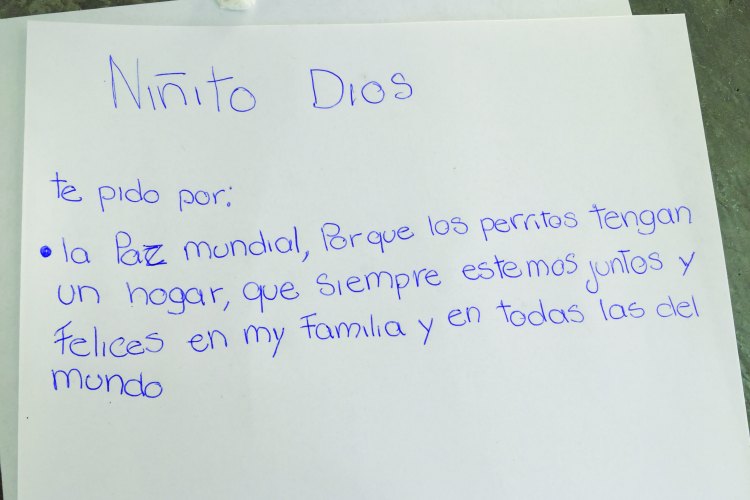 Niñito Dios
te pido por:
• la Paz mundial, Porque los perritos tengan
un hogar, que siempre estemos juntos y
felices en my familia y en todas las del
mundo